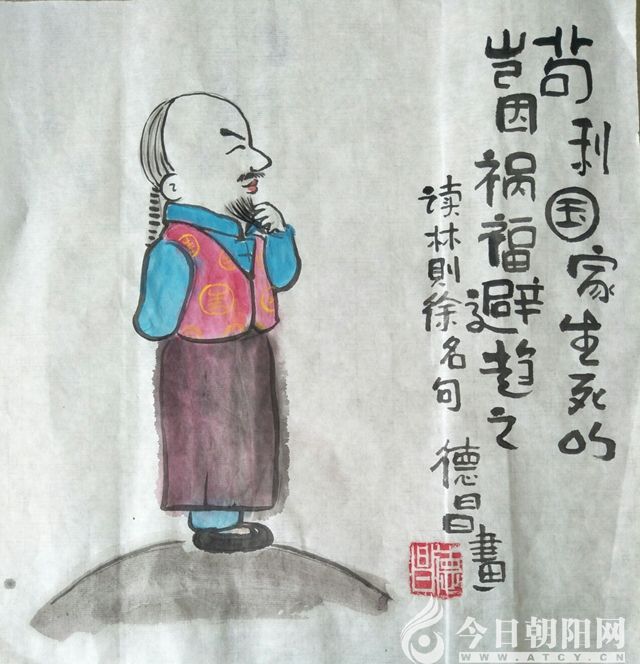 苟利国家生死以
岂因祸福避趋之
读林則徐名句
德昌畫
德昌
今日朝阳网
WWW.ATCY.CN